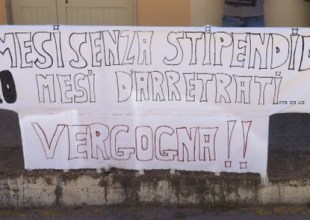 MESI SENZA STIPENDIO
MESI D'ARRETRATI...
VERGOGNA!!